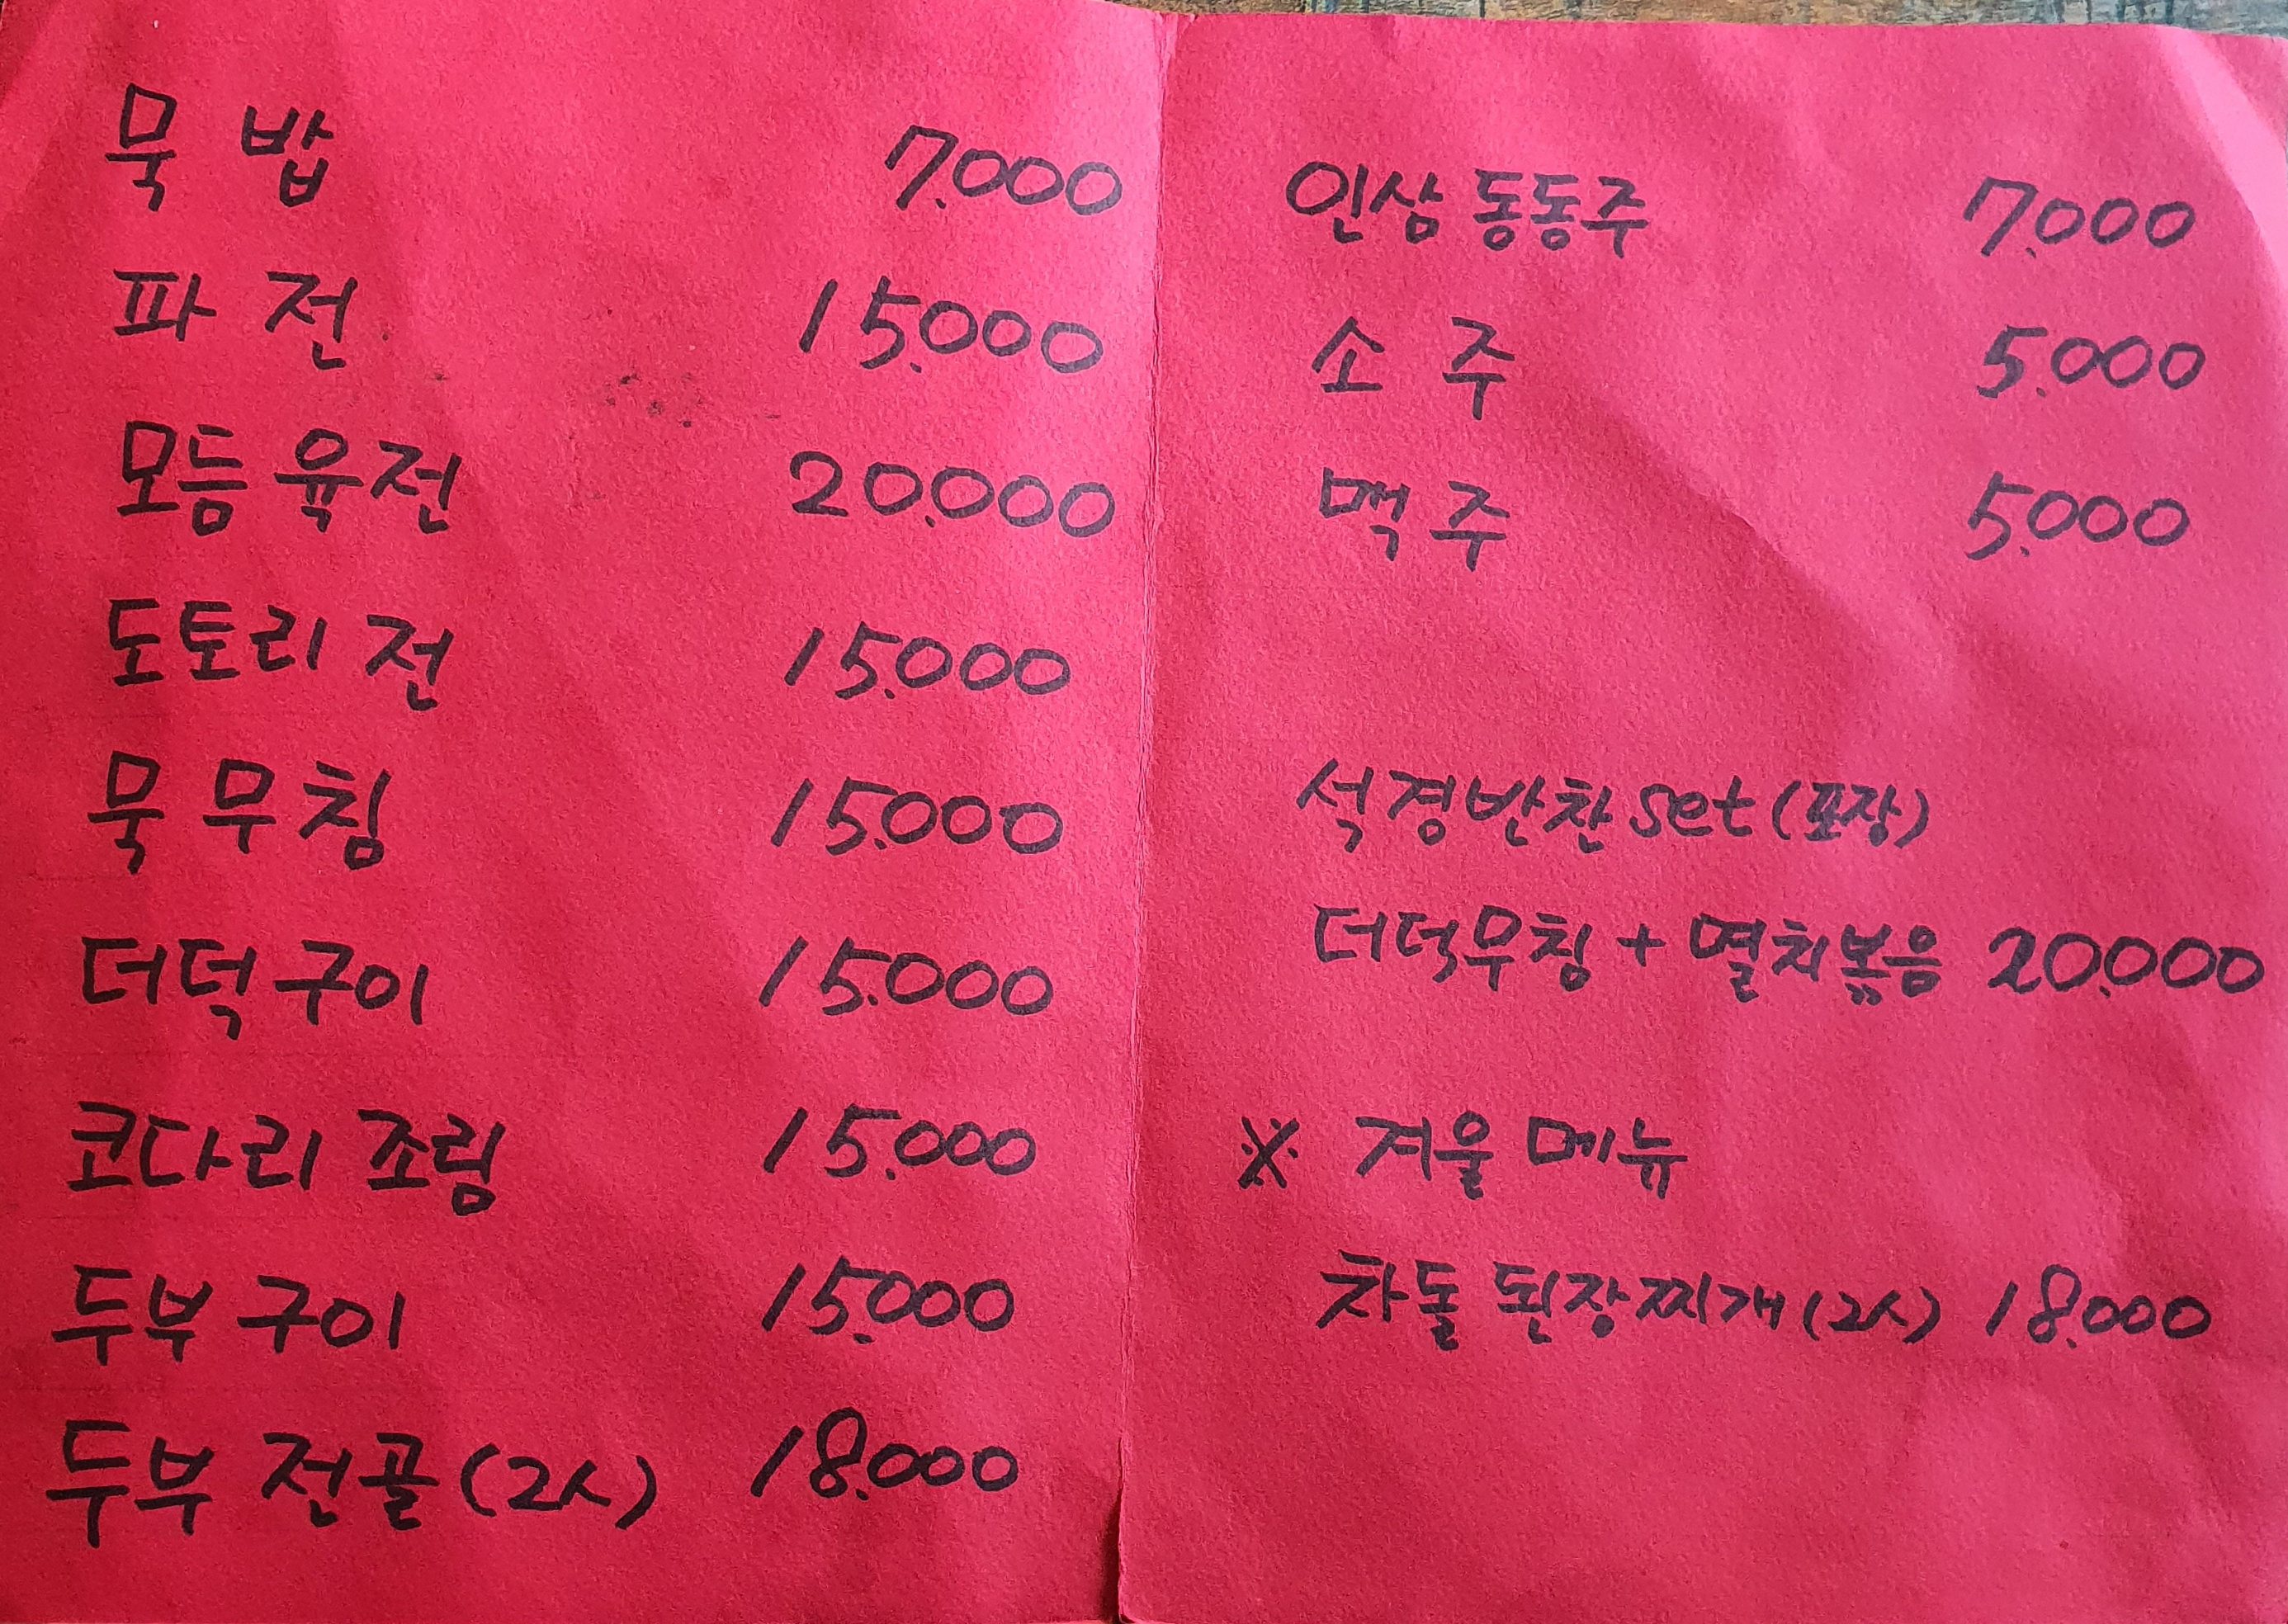 묵 밥 7.000
파 전 15.000
모듬 육전 20.000
도토리 전 15.000
묵 무침 15.000
더덕 구이 15.000
코다리 조림 15.000
두부 구이 15.000
두부 전골 (2人) 18.000
인삼 동동주 7.000
소 주 5.000
맥 주 5.000
석경반찬 set (포장)
더덕무침 + 멸치볶음 20.000
※ 겨울 메뉴
차돌 된장찌개 (2人) 18.000